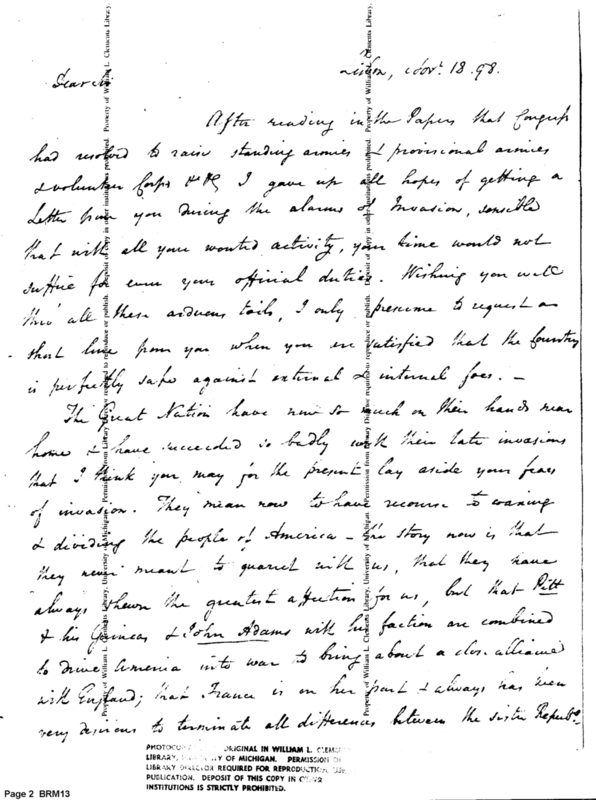 Lisbon, Novr. 18. 98.
Dear Sir
After reading in the Papers that Congress
had resolved to raise standing armies & provisional armies
& volunteer Corps &c &c I gave up all hopes of getting a
Letter from you during the alarms of Invasion, sensible
that with all your wonted activity, your time would not
suffice for even your official duties. Wishing you well
thro' all these arduous toils, I only presume to request a
short line from you when you are satisfied that the Country
is perfectly safe against external & internal foes. —
The Great Nation have now so much on their hands near
home & have succeeded so badly with their late invasions
that I think you may for the present lay aside your fears
of invasion. They mean now to have recourse to coaxing
& dividing the people of America — the story now is that
they never meant to quarrel with us, that they have
always shewn the greatest affection for us, but that Pitt
& his Guineas & John Adams with his faction are combined
to drive America into war to bring about a close alliance
with England; that France is on her part & always has been
very desirous to terminate all differences between the sister Repubs.
Property of William L. Clements Library.
PHOTOCOPY ORIGINAL IN WILLIAM L. CLEMENTS
LIBRARY, UNIVERSITY OF MICHIGAN. PERMISSION OF
LIBRARY DIRECTOR REQUIRED FOR REPRODUCTION,
PUBLICATION. DEPOSIT OF THIS COPY IN OTHER
INSTITUTIONS IS STRICTLY PROHIBITED.
Page 2 BRM13